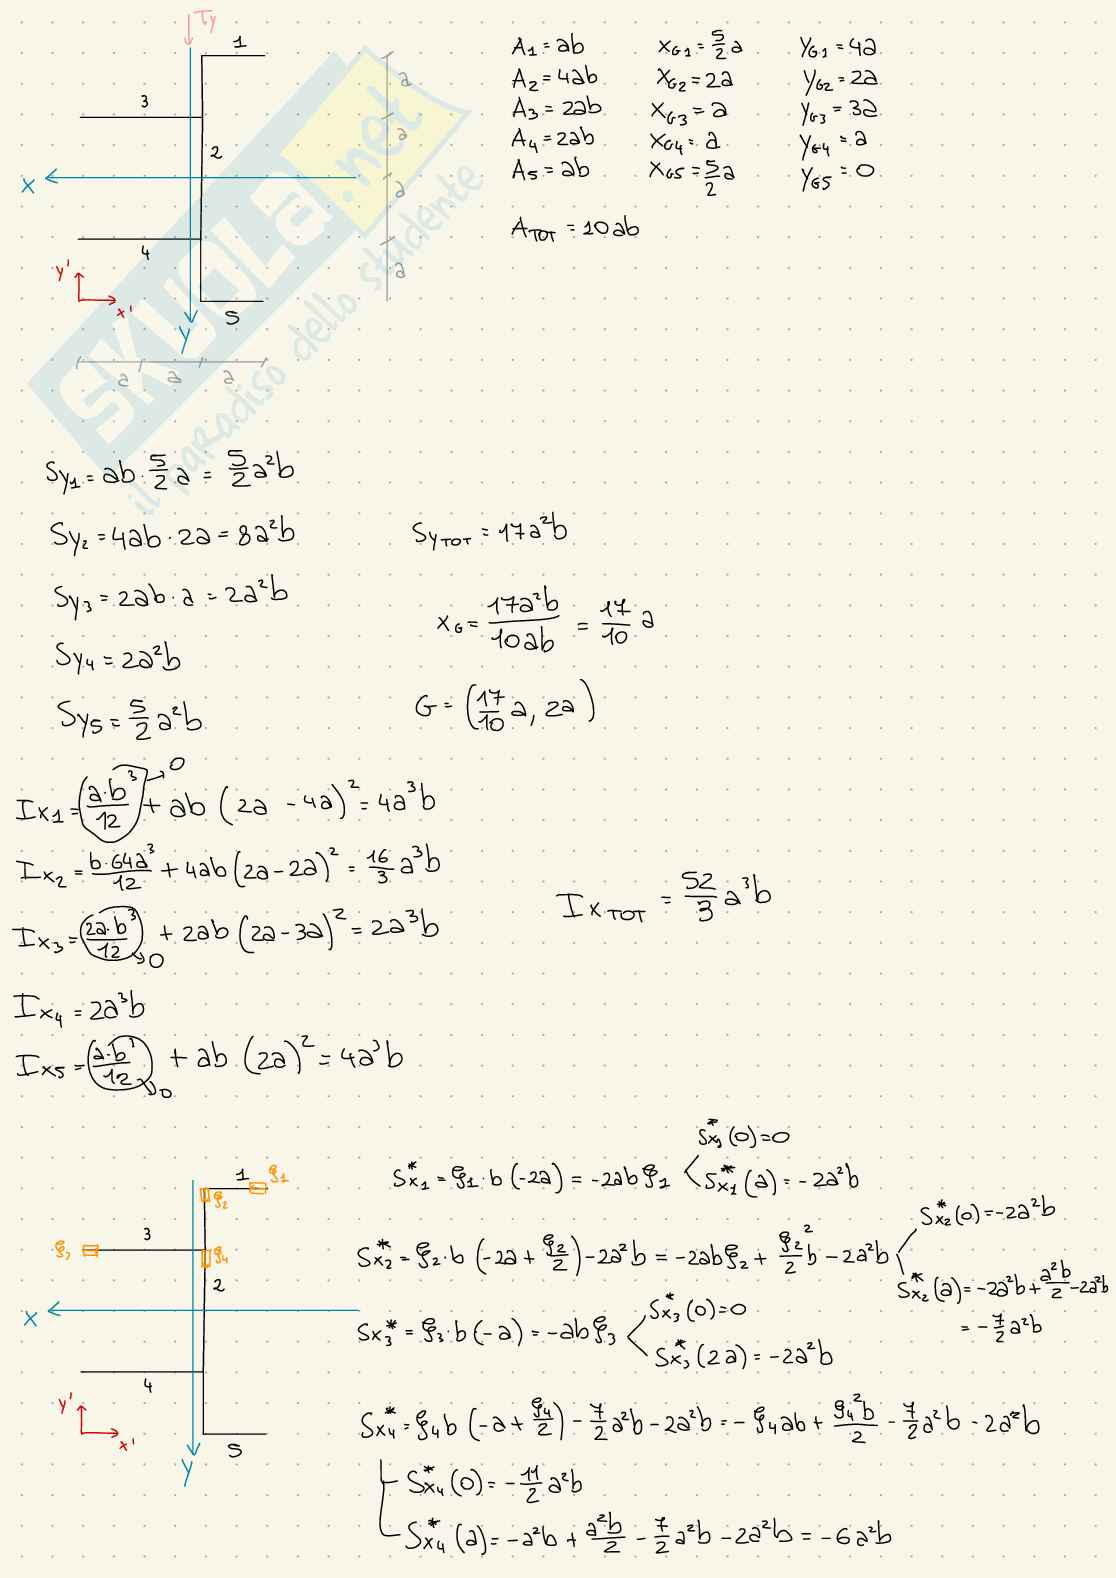 Ty
1
3
2
X
4
y'
x'
y
5
a
a
a
a
a a a
SKUOLA.net
il paradiso dello studente
A₁ = ab x_G1 = 5/2 a y_G1 = 4a
A₂ = 4ab x_G2 = 2a y_G2 = 2a
A₃ = 2ab x_G3 = a y_G3 = 3a
A₄ = 2ab x_G4 = a y_G4 = a
A₅ = ab x_G5 = 5/2 a y_G5 = 0
A_TOT = 10ab
Sy₁ = ab · 5/2 a = 5/2 a²b
Sy₂ = 4ab · 2a = 8a²b Sy_TOT = 17a²b
Sy₃ = 2ab · a = 2a²b
x_G = 17a²b/10ab = 17/10 a
Sy₄ = 2a²b
G = (17/10 a, 2a)
Sy₅ = 5/2 a²b
Ix₁ = (a·b³/12) → 0 + ab (2a - 4a)² = 4a³b
Ix₂ = b·64a³/12 + 4ab (2a - 2a)² = 16/3 a³b
Ix_TOT = 52/3 a³b
Ix₃ = (2a·b³/12) → 0 + 2ab (2a - 3a)² = 2a³b
Ix₄ = 2a³b
Ix₅ = (a·b³/12) → 0 + ab (2a)² = 4a³b
1
ξ₁
ξ₂
3
ξ₃
ξ₄
2
X
4
y'
x'
y
5
Sx₁* = ξ₁·b (-2a) = -2abξ₁
Sx₁*(0) = 0
Sx₁*(a) = -2a²b
Sx₂* = ξ₂·b (-2a + ξ₂/2) - 2a²b = -2abξ₂ + ξ₂²/2 b - 2a²b
Sx₂*(0) = -2a²b
Sx₂*(a) = -2a²b + a²b/2 - 2a²b
= -7/2 a²b
Sx₃* = ξ₃·b (-a) = -abξ₃
Sx₃*(0) = 0
Sx₃*(2a) = -2a²b
Sx₄* = ξ₄b (-a + ξ₄/2) - 7/2 a²b - 2a²b = -ξ₄ab + ξ₄²b/2 - 7/2 a²b - 2a²b
Sx₄*(0) = -11/2 a²b
Sx₄*(a) = -a²b + a²b/2 - 7/2 a²b - 2a²b = -6a²b